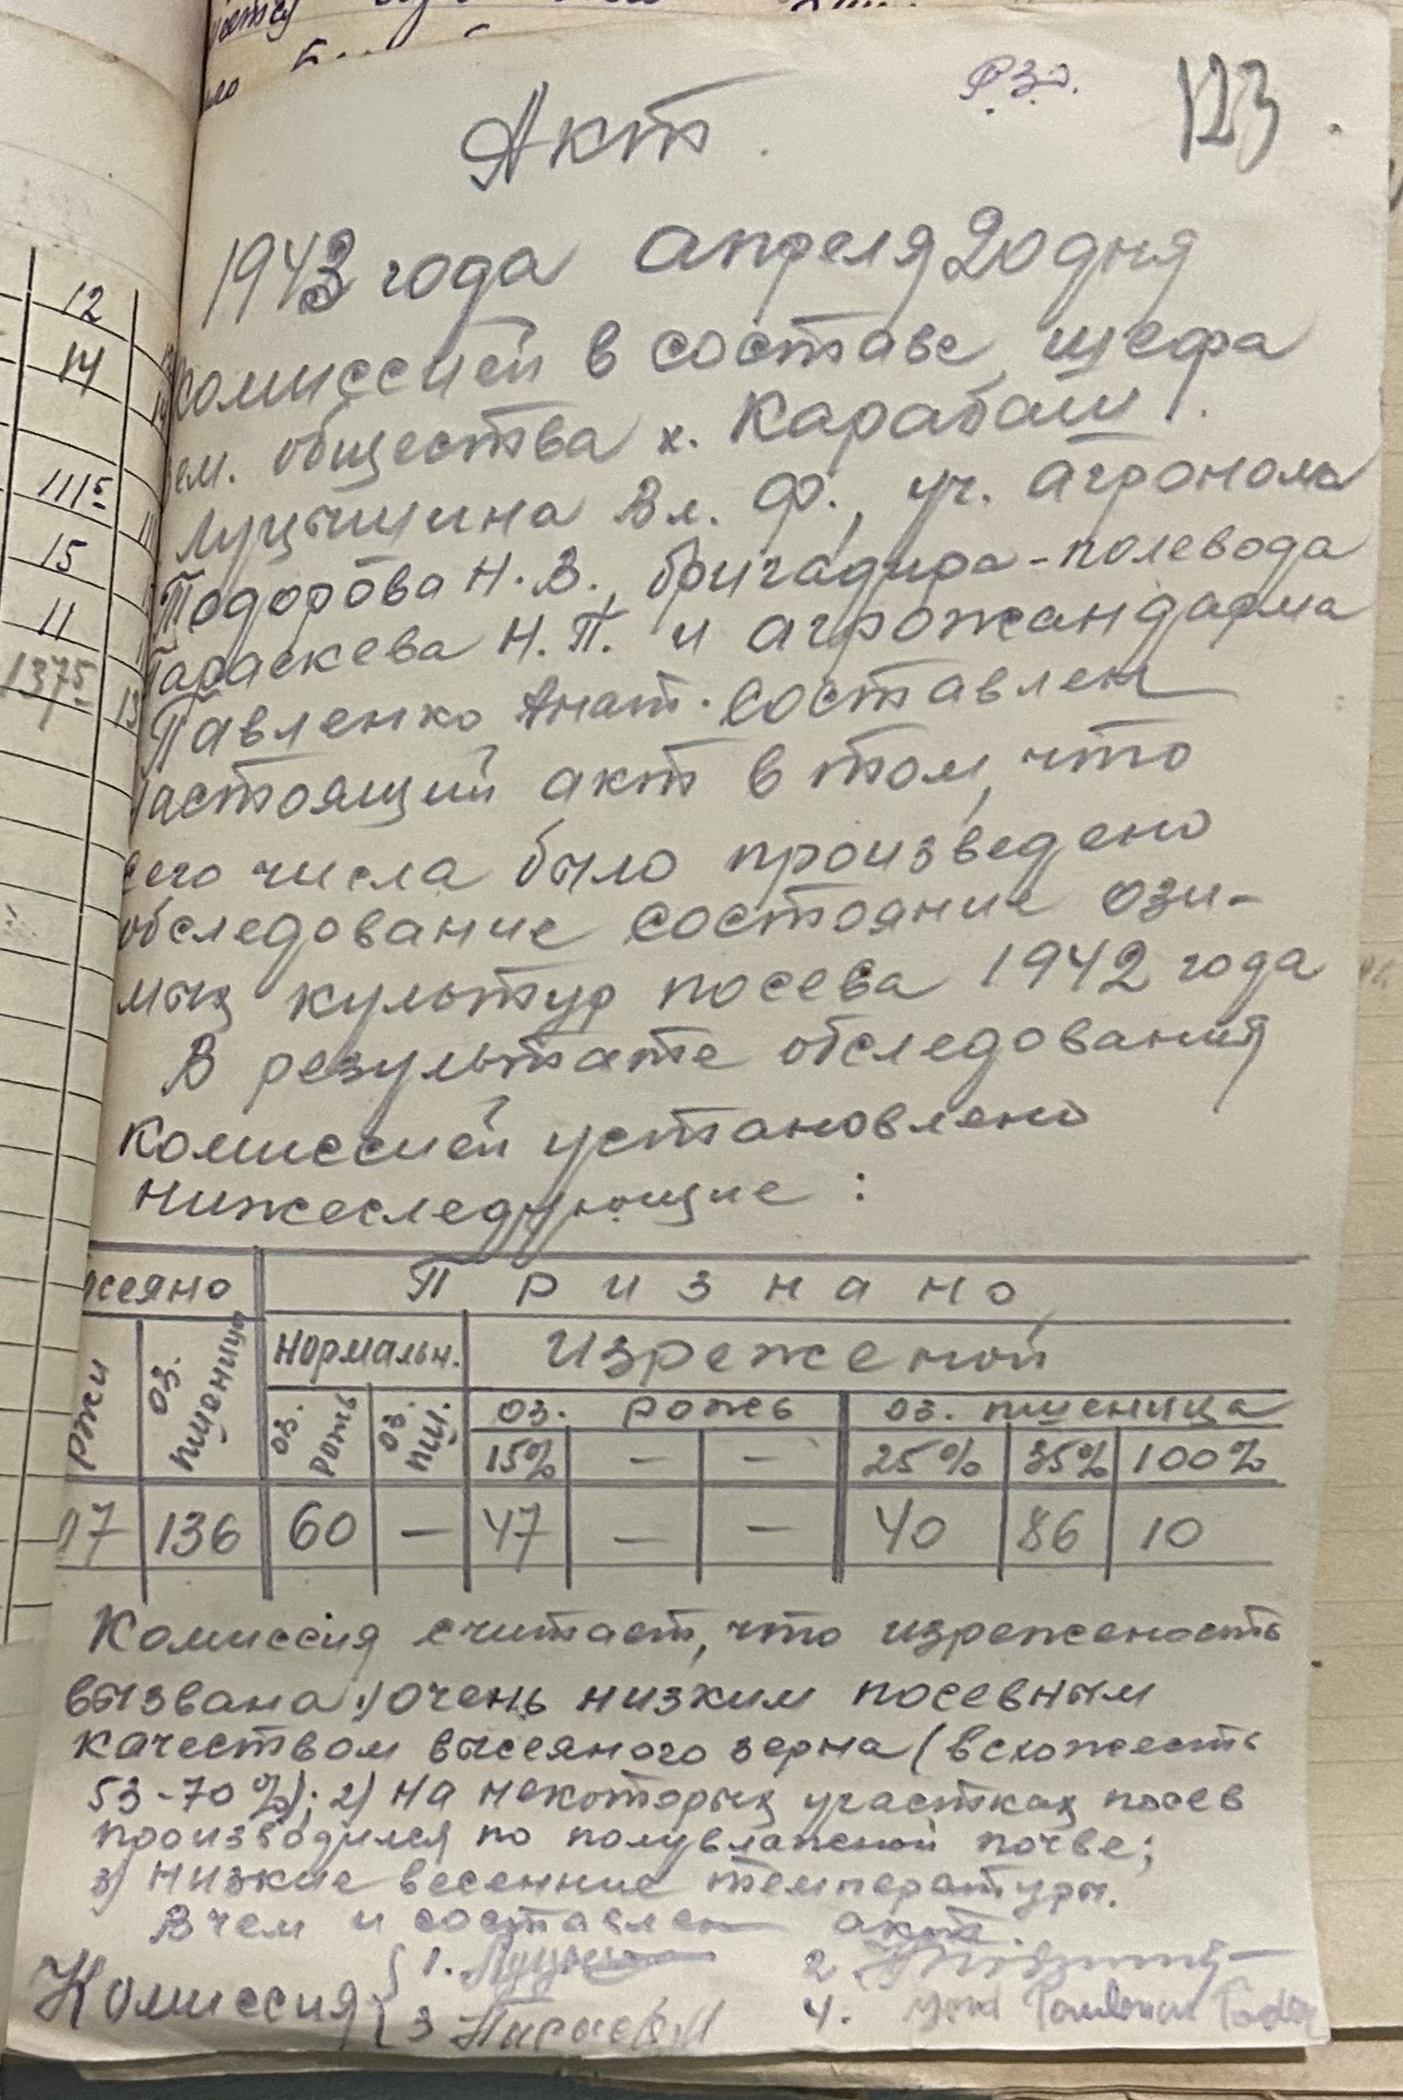 Р.З.О.
123
Акт.
1943 года апреля 20 дня
комиссией в составе шефа
зем. общества х. Карабаш
Лущыщина Вл. Ф., уч. агронома
Тодорова Н.В., бригадира-полевода
Параскева Н.П. и агрожандарма
Павленко Анат. составлен
настоящий акт в том, что
сего числа было произведено
обследование состояние ози-
мых культур посева 1942 года
В результате обследования
комиссией установлено
нижеследующие :
сеяно Признано
ржи оз. пшеницы нормальн. изреженой
оз. рожь оз. пш. оз. рожь оз. пшеница
15% — — 25% 35% 100%
07 136 60 — 47 — — 40 86 10
Комиссия считает, что изреженость
вызвана 1) очень низким посевным
качеством высеяного зерна (всхожесть
53-70%); 2) на некоторых участках посев
производился по полувлажной почве;
3) низкие весенние температуры.
В чем и составлен акт.
Комиссия 1. 2.
3 4.
12
14
1115
15
11
1375